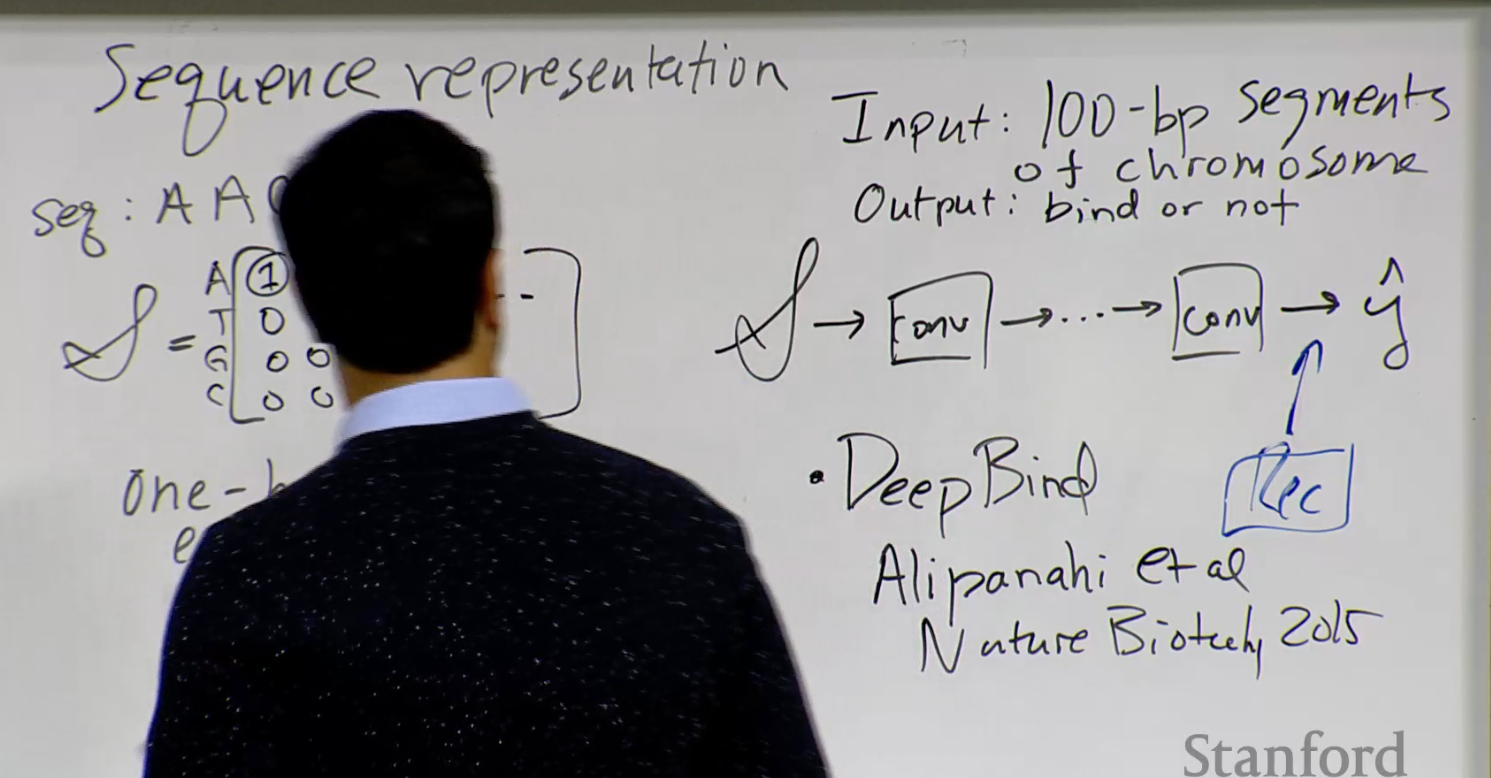 Sequence representation
seq: A A
A 1
T 0
G 0 0
C 0 0
S =
one-
e
Input: 100-bp segments
of chromosome
Output: bind or not
S → conv → ... → conv → ŷ
Rec
• DeepBind
Alipanahi et al
Nature Biotech, 2015
Stanford